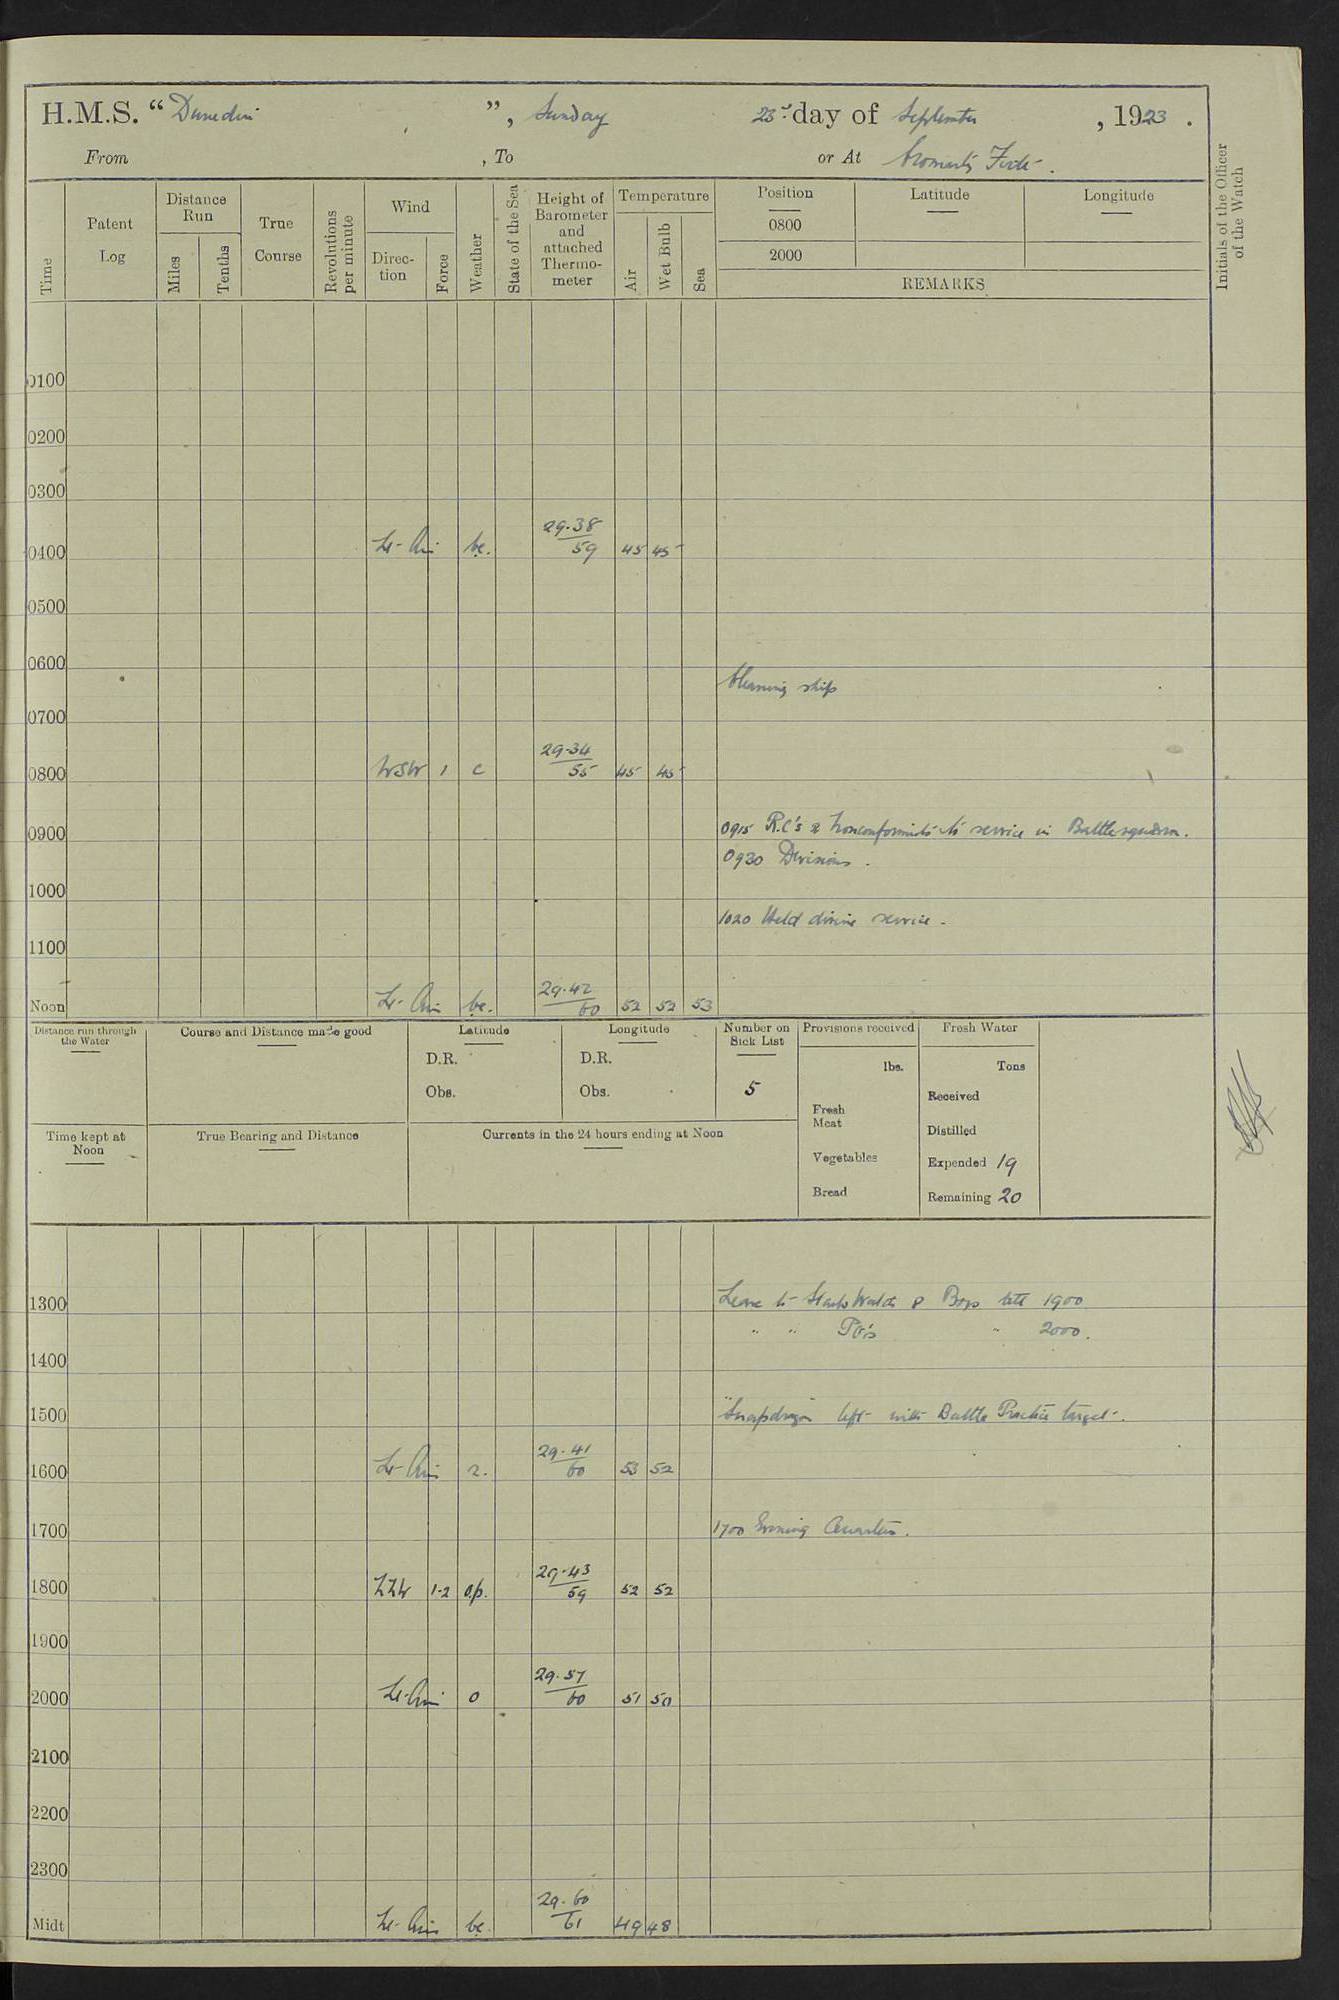 H.M.S. "Dunedin", Sunday 23rd day of September, 1923.
From , To or At Cromarty Firth.
Time
Patent Log
Distance Run
Miles
Tenths
True Course
Revolutions per minute
Wind
Direction
Force
Weather
State of the Sea
Height of Barometer and attached Thermometer
Temperature
Air
Wet Bulb
Sea
Position
Latitude
Longitude
0800
2000
REMARKS
Initials of the Officer of the Watch
0100
0200
0300
0400 Lt- Air bc. 29.38/59 45 45
0500
0600
Cleaning ship
0700
0800 WSW 1 c 29.34/55 45 45
0900 0915 R.C's & Nonconformists to service in Battlesquadron.
0930 Divisions.
1000
1020 Held divine service.
1100
Noon Lt- Air bc. 29.42/60 52 52 53
Distance run through the Water
Course and Distance made good
Latitude
D.R.
Obs.
Longitude
D.R.
Obs.
Number on Sick List
5
Provisions received
lbs.
Fresh Meat
Vegetables
Bread
Fresh Water
Tons
Received
Distilled
Expended 19
Remaining 20
Time kept at Noon
True Bearing and Distance
Currents in the 24 hours ending at Noon
1300 Leave to Starb Watch & Boys till 1900
" " PO's " 2000.
1400
1500 "Snapdragon" left with Battle Practice target.
1600 Lt- Air 2. 29.41/60 53 52
1700 1700 Evening Quarters.
1800 1-2 o.p. 29.43/59 52 52
1900
2000 Lt-Air o 29.57/60 51 50
2100
2200
2300
Midt Lt- Air bc. 29.60/61 49 48